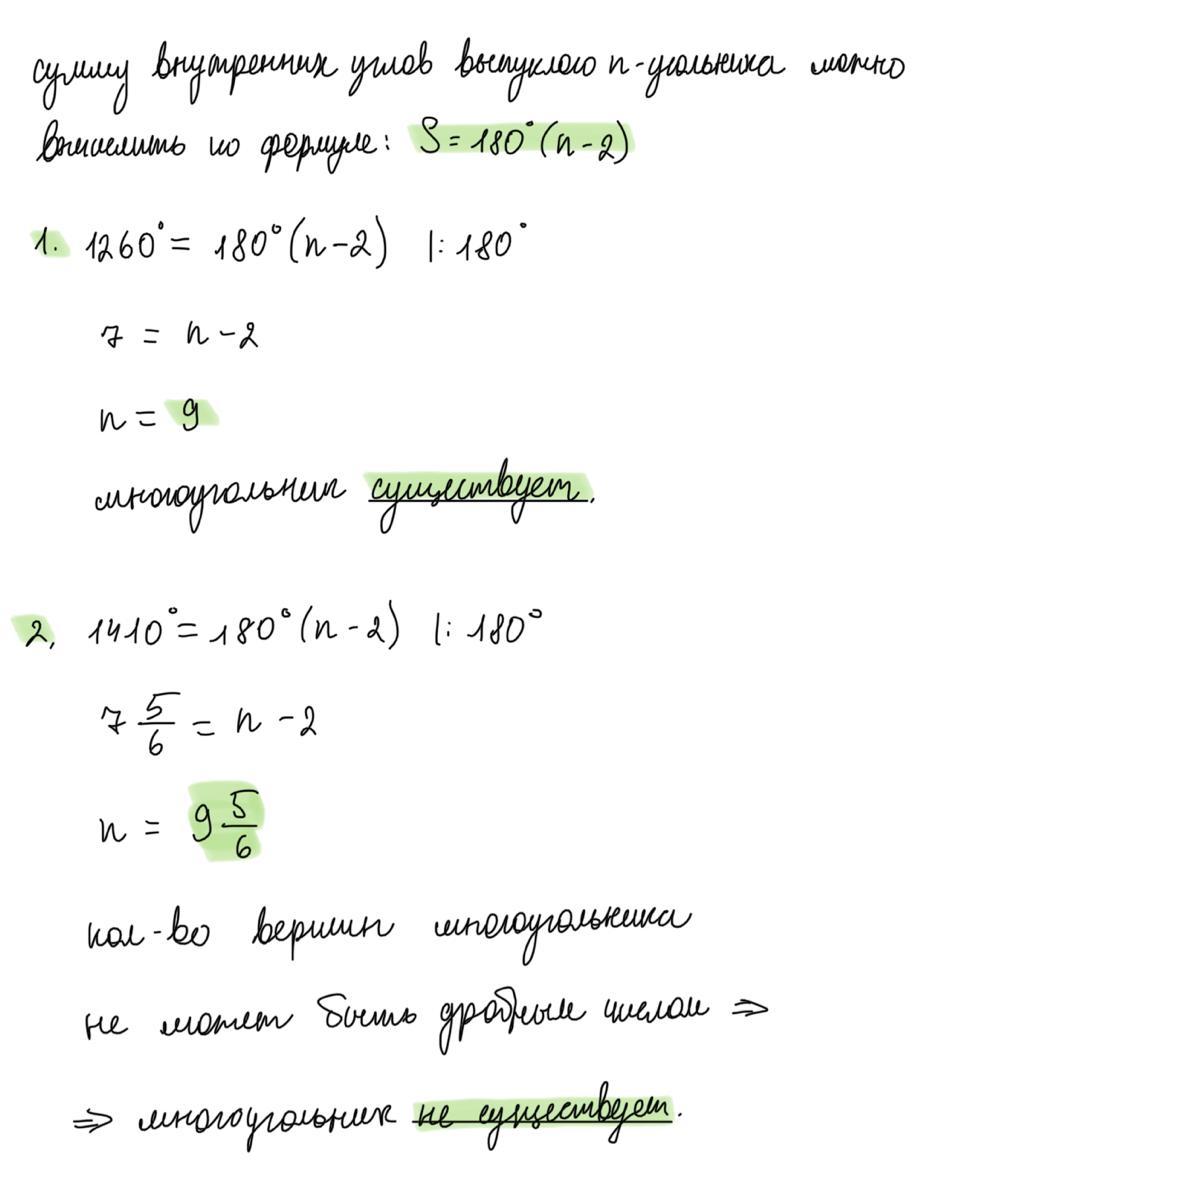 сумму внутренних углов выпуклого n-угольника можно
вычислить по формуле: S = 180°(n-2)
1. 1260° = 180°(n-2) |: 180°
7 = n-2
n = 9
многоугольник существует.
2. 1410° = 180°(n-2) |: 180°
7 5/6 = n-2
n = 9 5/6
кол-во вершин многоугольника
не может быть дробным числом ⇒
⇒ многоугольник не существует.